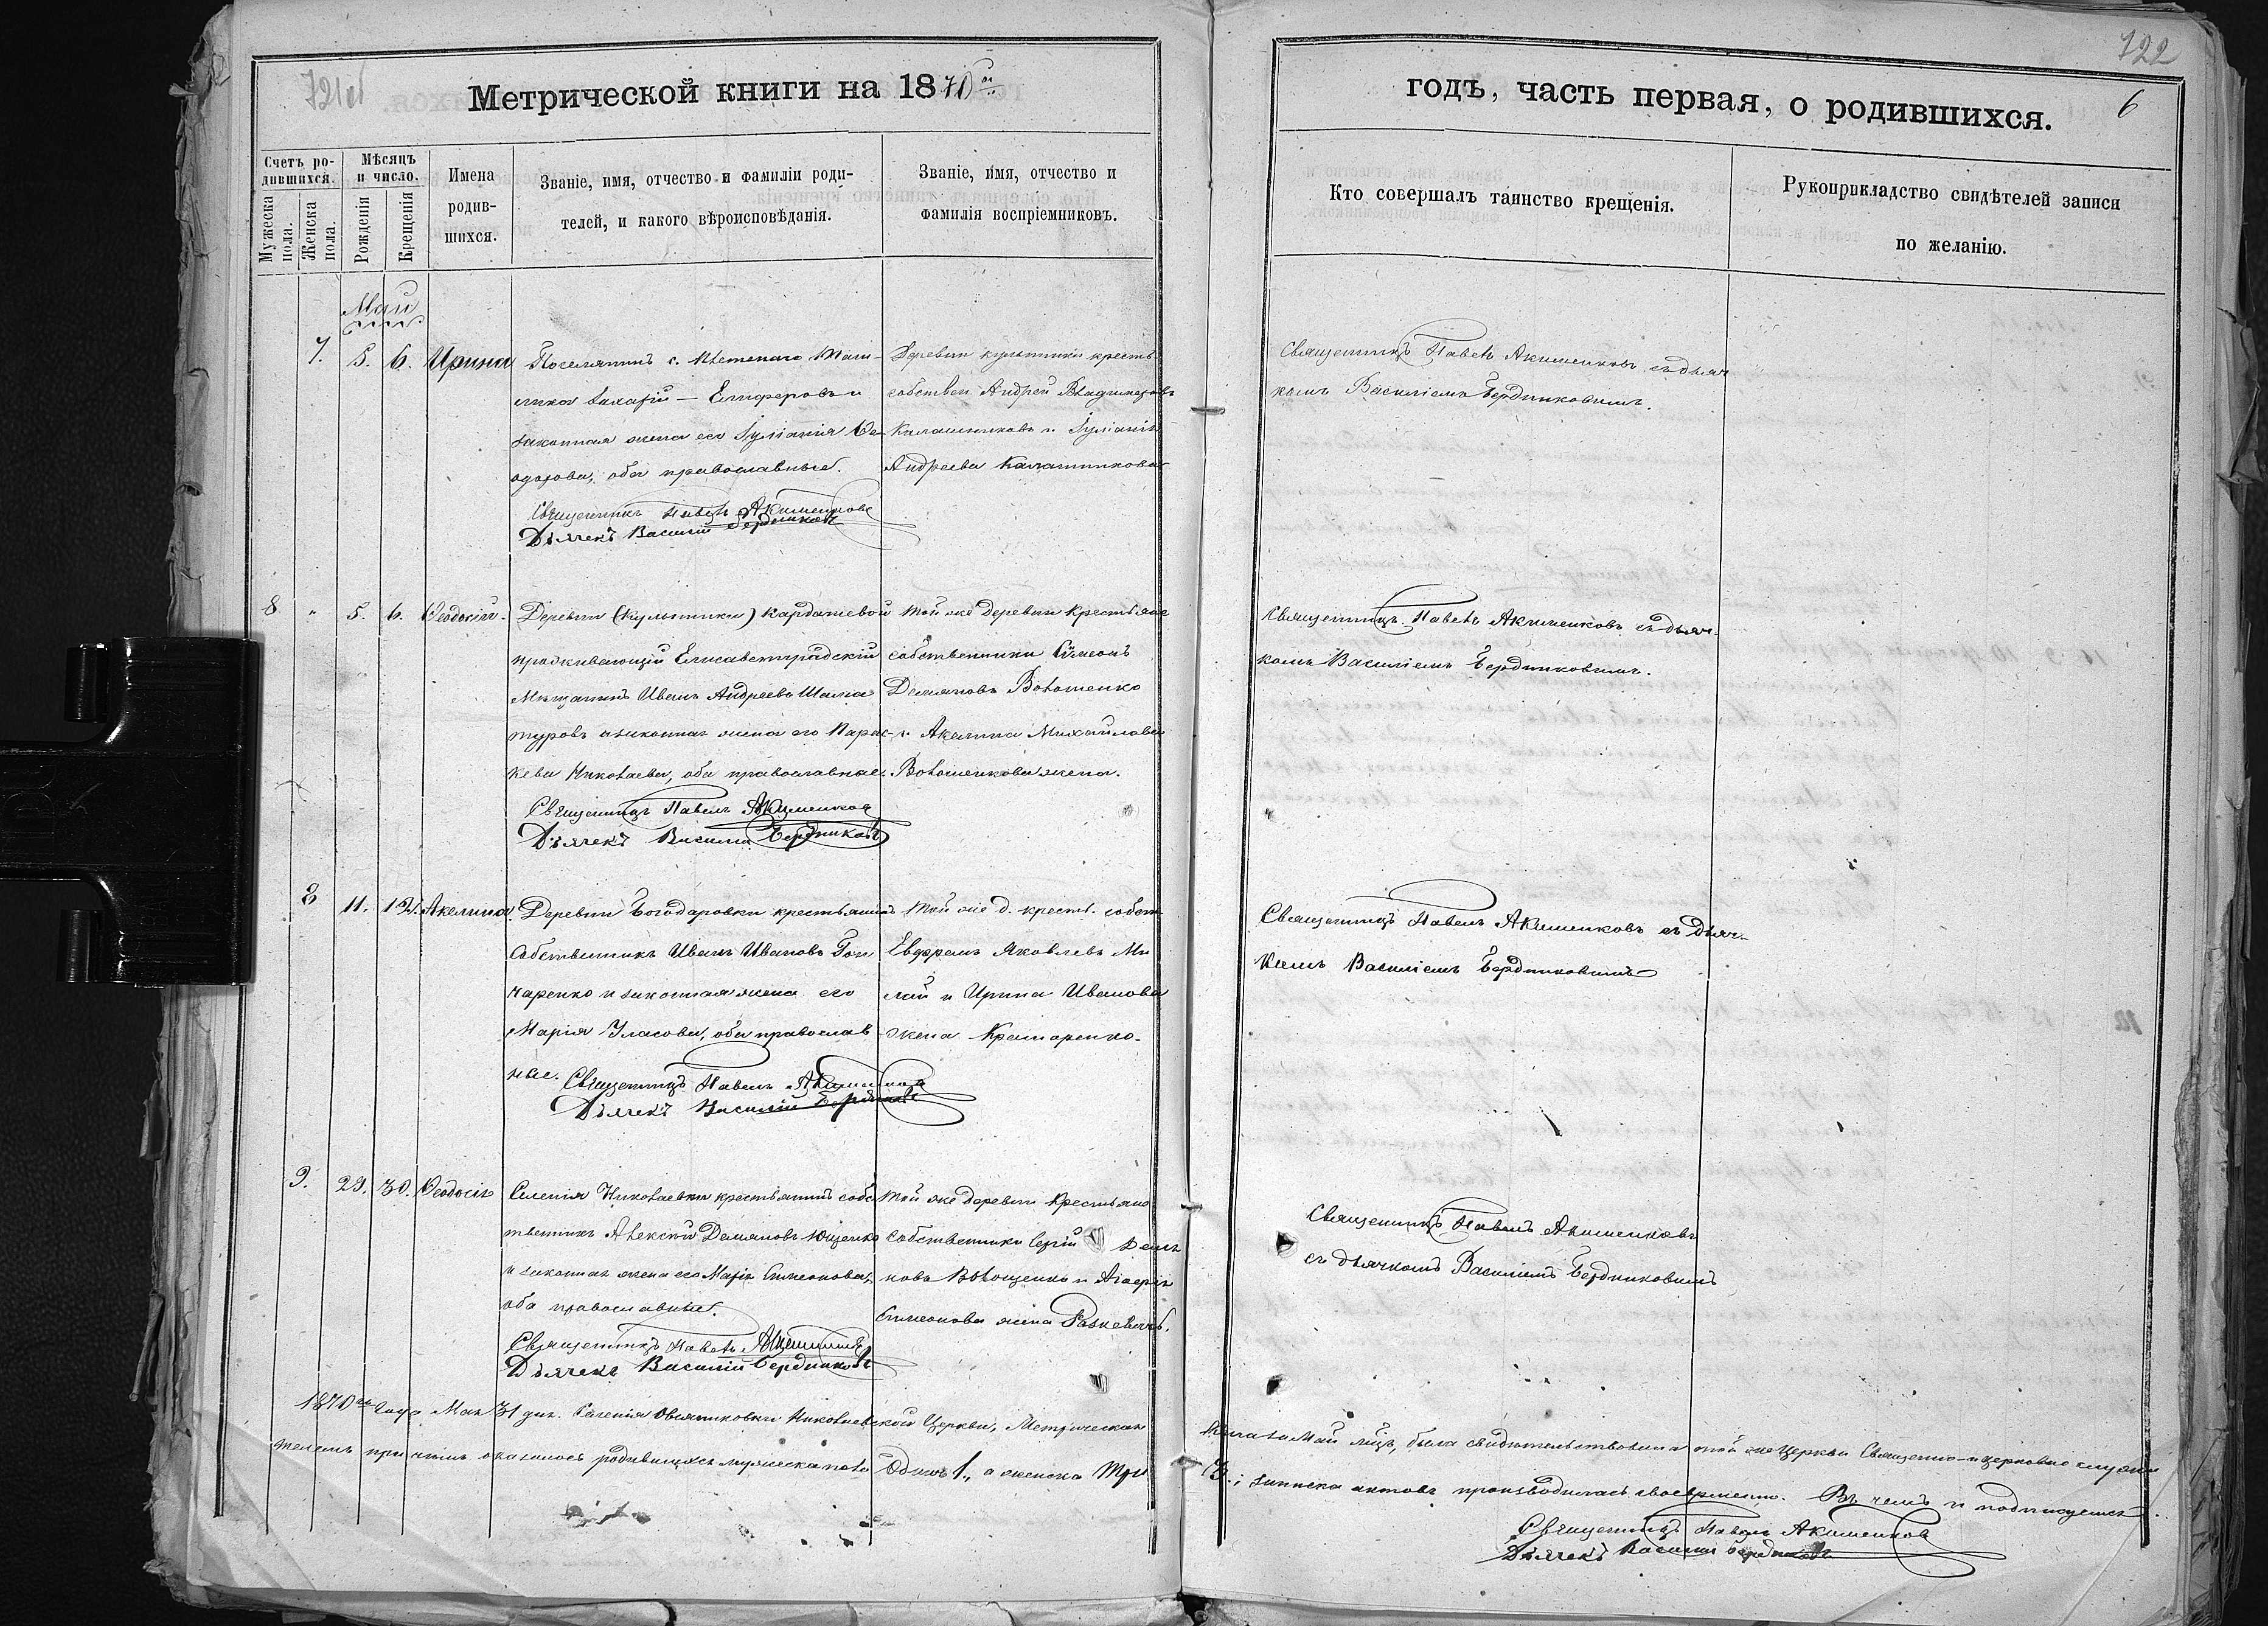 722
6
Метрической книги на 1870й
годъ, часть первая, о родившихся.
Счетъ родившихся.
Мужеска пола.
Женска пола.
Мѣсяцъ и число.
Рожденія
Крещенія
Имена родившихся.
Званіе, имя, отчество и фамиліи родителей, и какого вѣроисповѣданія.
Званіе, имя, отчество и фамилія воспріемниковъ.
Кто совершалъ таинство крещенія.
Рукоприкладство свидѣтелей записи по желанію.
Май
7. 5. 6. Ирина
Поселянинъ с.
Захарій — Елиферовъ и
законная жена его Іуліанія Ѳе-
одорова, оба православные.
Священникъ Павелъ Акименковъ
Дьячекъ Василій Бердниковъ
Деревни культики крестья
собствен. Андрей Владимеровъ
Калашниковъ и Іуліанія
Андреева Калашникова
Священникъ Павелъ Акименковъ съ дьяч
комъ Василіемъ Бердниковымъ.
8 " 5. 6. Ѳеодосій.
Деревни (Культики) Кардашевой
проживающій Елисаветградскій
Мѣщанинъ Иванъ Андреевъ Шама
туровъ и законная жена его Парас-
кева Николаева, оба православные.
Священникъ Павелъ Акименковъ
Дьячекъ Василій Бердниковъ
Той же деревни Крестьяне
собственники Сѵмеонъ
Демяновъ Волошенко
и Акелина Михайлова
Волошенкова жена.
Священникъ Павелъ Акименковъ съ дьяч-
комъ Василіемъ Бердниковымъ.
8 11. 12. Акелина.
Деревни Богодаровки крестьянинъ
Собственникъ Иванъ Ивановъ Гон
чаренко и законная жена его
Марія Уласова, оба православ
ные. Священникъ Павелъ Акименковъ
Дьячекъ Василій Бердниковъ
Той же д. крест. собст.
Евфремъ Яковлевъ Ми
лай и Ирина Иванова
жена Крамаренко.
Священникъ Павелъ Акименковъ съ дьяч-
комъ Василіемъ Бердниковымъ
9. 29. 30. Ѳеодосія
Селенія Николаевки крестьянинъ собс
твенникъ Алексѣй Демяновъ Ющенко
и законная жена его Марія Симеонова,
оба православные.
Священникъ Павелъ Акименковъ
Дьячекъ Василій Бердниковъ
Той же деревни Крестьяне
Собственники Сергій Демя
новъ и
Симеонова жена
Священникъ Павелъ Акименковъ
съ дьячкомъ Василіемъ Бердниковымъ
1870го года Мая 31 дня. Селенія Овсяниковки Николаевской Церкви, Метрическая
Книга за Май мѣцъ, была свидѣтельствована той же Церкви Священно-и церковно служи
телемъ при чемъ оказалось родившихся мужеска пола Одинъ 1, а женска Три
3.; записка актовъ производилась своевременно. Въ чемъ и подписуемся.
Священникъ Павелъ Акименковъ
Дьячекъ Василій Бердниковъ